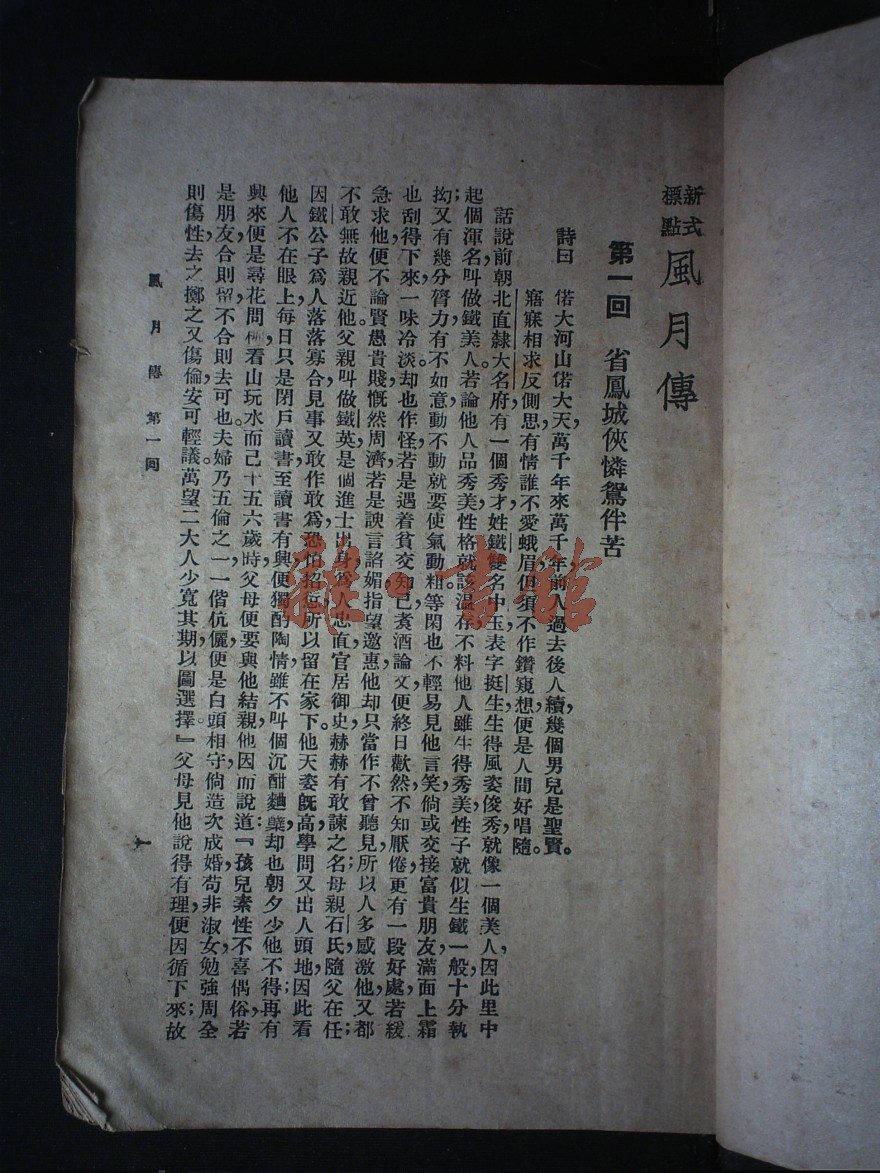 新式標點 風月傳
第一回　省鳳城俠憐鴛伴苦
詩曰　偌大河山偌大天，萬千年來萬千年，前人過去後人續，幾個男兒是聖賢。
寤寐相求反側思，有情誰不愛蛾眉，但須不作鑽窺想，便是人間好唱隨。
話說前朝北直隸大名府，有一個秀才，姓鐵，雙名中玉，表字挺生，生得風姿俊秀，就像一個美人，因此里中
起個渾名，叫做鐵美人。若論他人品秀美，性格就該溫存，不料他人雖生得秀美，性子就似生鐵一般，十分執
拗；又有幾分膂力，有不如意，動不動就要使氣動粗，等閑也不輕易見他言笑，倘或交接富貴朋友，滿面上霜
也刮得下來，一味冷淡。却也作怪，若是遇着貧交知己，煮酒論文，便終日歡然，不知厭倦，更有一段好處，若緩
急求他，便不論賢愚貴賤，慨然周濟，若是諛言諂媚，指望邀惠，他却只當作不曾聽見，所以人多感激他，又都
不敢無故親近他。父親叫做鐵英，是個進士出身，爲人忠直，官居御史，赫赫有敢諫之名；母親石氏，隨父在任；
因鐵公子爲人落落寡合，見事又敢作敢爲，恐怕招　所以留在家下。他天姿既高，學問又出人頭地，因此看
他人不在眼上，每日只是閉戶讀書，至讀書有興，便獨酌陶情，雖不叫個沉酣麯蘖，却也朝夕少他不得；再有
興來，便是尋花問柳，看山玩水而已。十五六歲時，父母便要與他結親，他因而說道：『孩兒素性不喜偶俗，若
是朋友，合則留，不合則去可也。夫婦乃五倫之一，一偕伉儷，便是白頭相守，倘造次成婚，苟非淑女，勉強周全
則傷性，去之擲之又傷倫，安可輕議。萬望二大人少寬其期，以圖選擇。』父母見他說得有理，便因循下來；故
鳳月傳　第一回
一
雜·書館